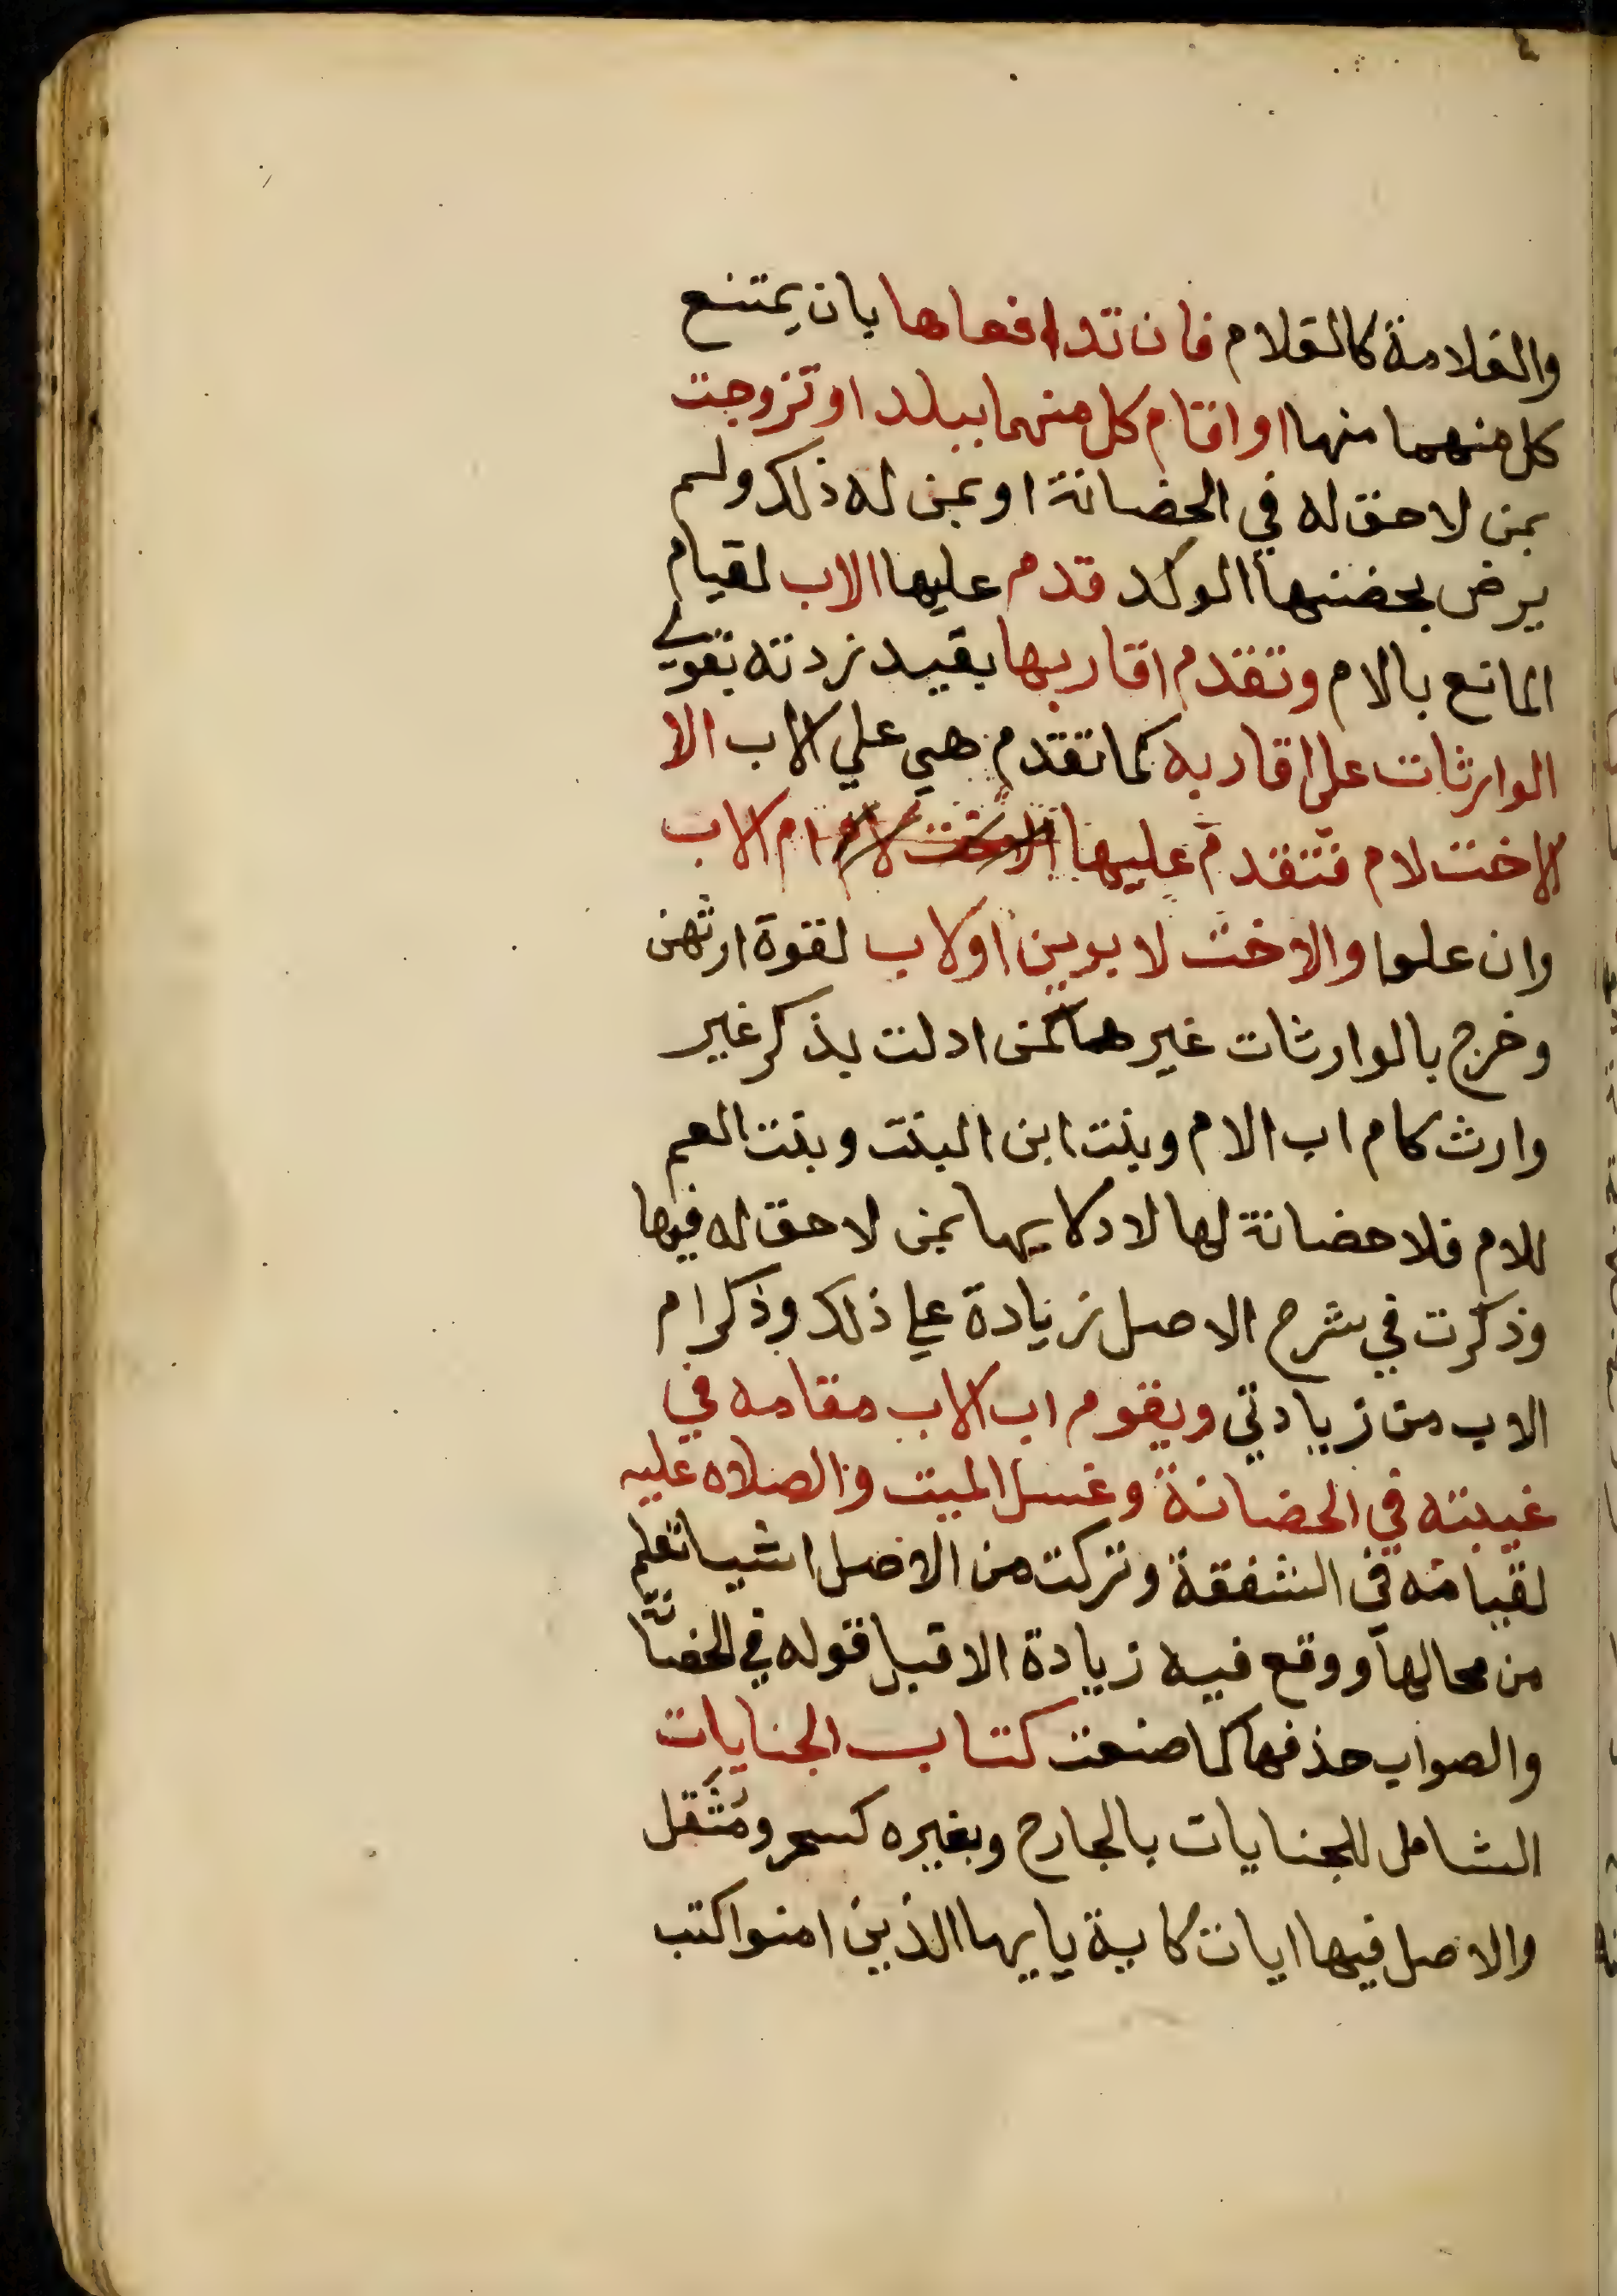 والقلامة كالقلام فان تدافعاها بان يمتنع
كل منهما منها او اقام كل منهما ببلد او تزوجت
بمن لا حق له في الحضانة او بمن له ذلك ولم
يرض بحضنها الولد قدم عليها الاب لقيام
المانع بالام وتقدم اقاربها بقيد زدته بقولي
الوارثات على اقاربه كما تقدم هي علي الاب الا
الاخت لام فتقدم عليها ام الاب
وان علوا والاخت لابوين او لاب لقوة ارثهن
وخرج بالوارثات غيرها كمن ادلت بذكر غير
وارث كام اب الام وبنت ابن البنت وبنت العم
للام فلا حضانة لها لادلايها بمن لا حق له فيها
وذكرت في شرح الاصل زيادة علي ذلك وذكر ام
الاب من زيادتي ويقوم اب الاب مقامه في
غيبته في الحضانة وغسل الميت والصلاه عليه
لقيامه في الشفقة وتركت من الاصل اشيا تعلم
من محالها ووقع فيه زيادة الا قبل قوله في الحضانة
والصواب حذفها كما صنعت كتاب الجنايات
الشامل للجنايات بالجارح وبغيره كسحر ومثقل
والاصل فيها ايات كاية يايها الذين امنوا كتب